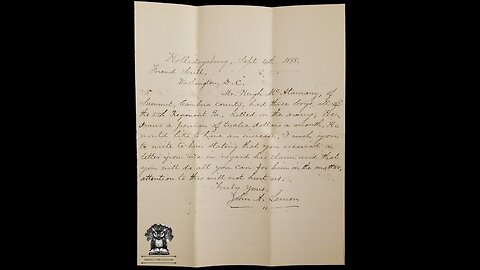 Hollidaysburg, Sept 4th 1888.
Friend Scull,
Washington, D.C.
Mr. Hugh McAtamany, of
Summit, Cambria County, had three boys, all of
the 11th Regiment Pa, killed in the army, He
Draws a pension of twelve dollars a month, He
would like to have an increase, I wish you
to write to him stating that you received a
letter from me in regard his claim and that
you will do all you can for him in the matter,
attention to this will not hurt us.
Truly Yours,
John A. Lemon